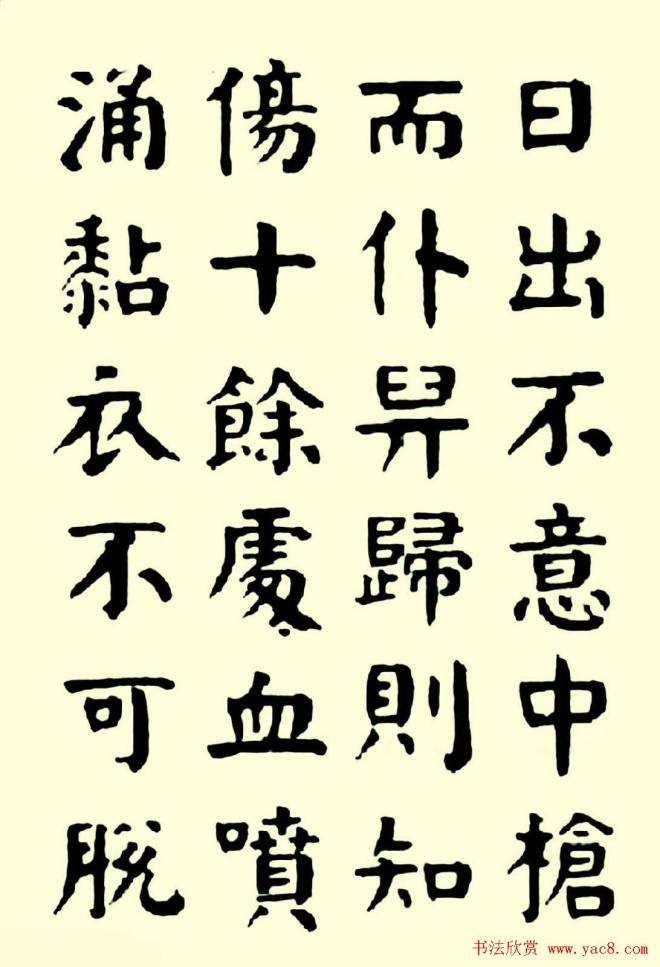 日出不意中槍
而仆舁歸則知
傷十餘處血噴
涌黏衣不可脫
书法欣赏 www.yac8.com